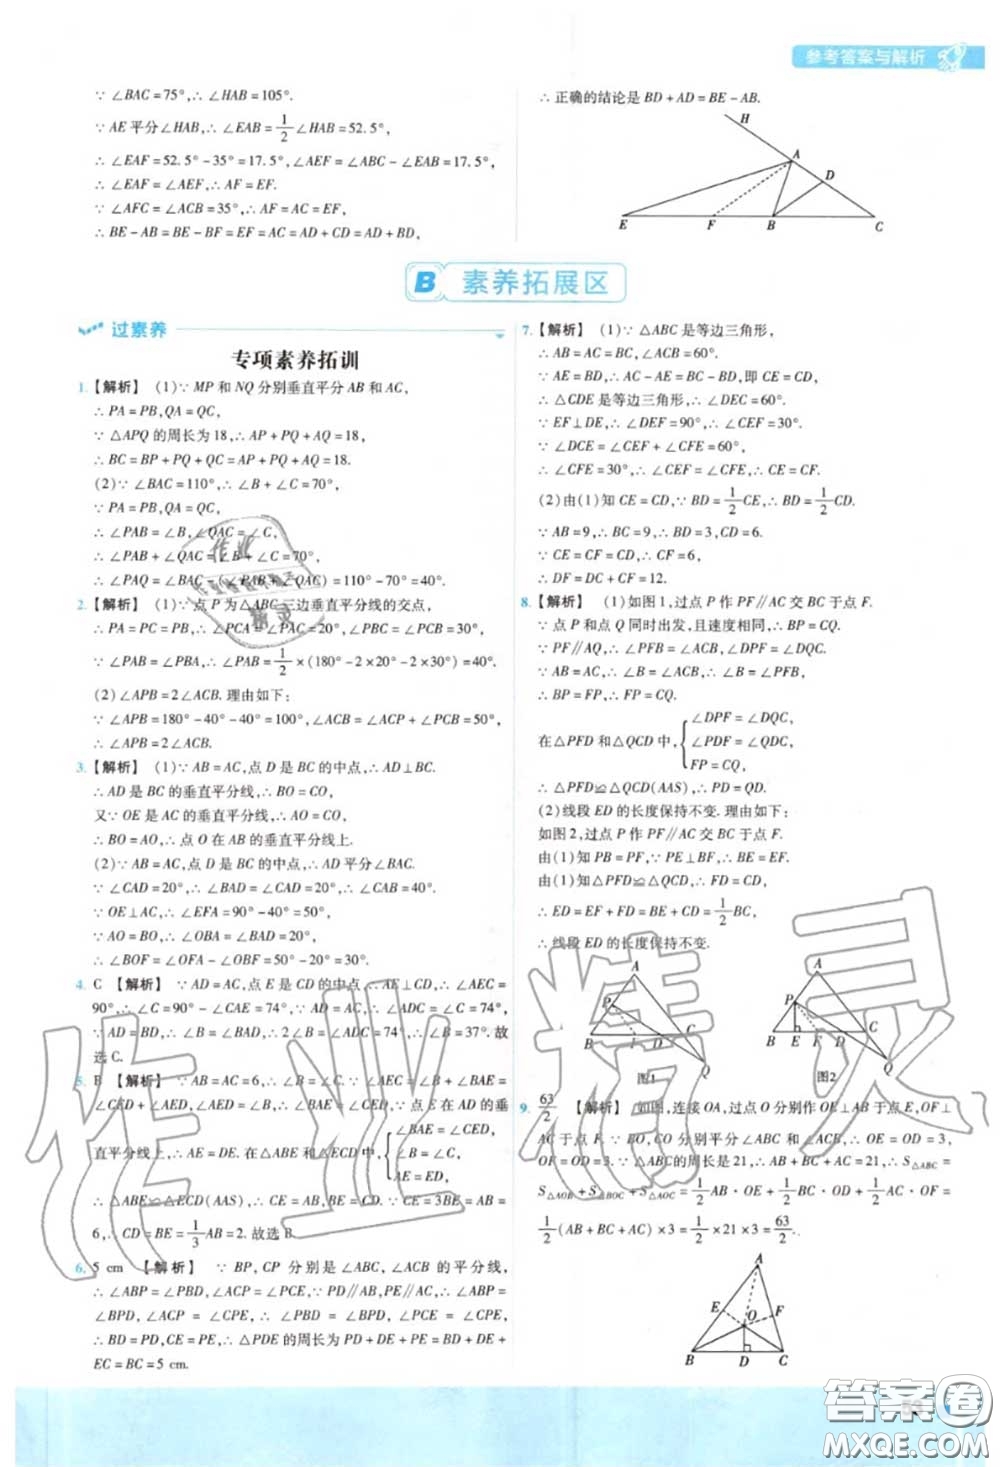 参考答案与解析
∵ ∠BAC=75°,∴ ∠HAB=105°.
∵ AE 平分∠HAB,∴ ∠EAB=1/2∠HAB=52.5°,
∴ ∠EAF=52.5°-35°=17.5°,∠AEF=∠ABC-∠EAB=17.5°,
∴ ∠EAF=∠AEF,∴ AF=EF.
∵ ∠AFC=∠ACB=35°,∴ AF=AC=EF,
∴ BE-AB=BE-BF=EF=AC=AD+CD=AD+BD,
∴ 正确的结论是 BD+AD=BE-AB.
H
A
D
E F B C
B 素养拓展区
过素养
专项素养拓训
1.【解析】 (1)∵ MP 和 NQ 分别垂直平分 AB 和 AC,
∴ PA=PB,QA=QC,
∵ △APQ 的周长为 18,∴ AP+PQ+AQ=18,
∴ BC=BP+PQ+QC=AP+PQ+AQ=18.
(2)∵ ∠BAC=110°,∴ ∠B+∠C=70°,
∵ PA=PB,QA=QC,
∴ ∠PAB=∠B,∠QAC=∠C,
∴ ∠PAB+∠QAC=∠B+∠C=70°,
∴ ∠PAQ=∠BAC-(∠PAB+∠QAC)=110°-70°=40°.
2.【解析】 (1)∵ 点 P 为△ABC 三边垂直平分线的交点,
∴ PA=PC=PB,∴ ∠PCA=∠PAC=20°,∠PBC=∠PCB=30°,
∵ ∠PAB=∠PBA,∴ ∠PAB=1/2×(180°-2×20°-2×30°)=40°.
(2)∠APB=2∠ACB. 理由如下:
∵ ∠APB=180°-40°-40°=100°,∠ACB=∠ACP+∠PCB=50°,
∴ ∠APB=2∠ACB.
3.【解析】 (1)∵ AB=AC,点 D 是 BC 的中点,∴ AD⊥BC.
∴ AD 是 BC 的垂直平分线,∴ BO=CO,
又∵ OE 是 AC 的垂直平分线,∴ AO=CO,
∴ BO=AO,∴ 点 O 在 AB 的垂直平分线上.
(2)∵ AB=AC,点 D 是 BC 的中点,∴ AD 平分∠BAC.
∵ ∠CAD=20°,∴ ∠BAD=∠CAD=20°,∠CAB=40°.
∵ OE⊥AC,∴ ∠EFA=90°-40°=50°,
∵ AO=BO,∴ ∠OBA=∠BAD=20°,
∴ ∠BOF=∠OFA-∠OBF=50°-20°=30°.
4. C 【解析】 ∵ AD=AC,点 E 是 CD 的中点,∴ ∠AEC=
90°,∴ ∠C=90°-∠CAE=74°,∵ AD=AC,∴ ∠ADC=∠C=74°,
∵ AD=BD,∴ ∠B=∠BAD,∴ 2∠B=∠ADC=74°,∴ ∠B=37°. 故
选 C.
5. B 【解析】 ∵ AB=AC=6,∴ ∠B=∠C,∵ ∠B+∠BAE=
∠CED+∠AED,∠AED=∠B,∴ ∠BAE=∠CED,∵ 点 E 在 AD 的垂
直平分线上,∴ AE=DE. 在△ABE 和△ECD 中,{∠BAE=∠CED,
∠B=∠C,
AE=ED,
∴ △ABE≌△ECD(AAS),∴ CD=BE,∵ CE=3BE=AB=
6,∴ CD=BE=1/3AB=2. 故选 B.
6. 5 cm 【解析】 ∵ BP,CP 分别是∠ABC,∠ACB 的平分线,
∴ ∠ABP=∠PBD,∠ACP=∠PCE,∵ PD∥AB,PE∥AC,∴ ∠ABP=
∠BPD,∠ACP=∠CPE,∴ ∠PBD=∠BPD,∠PCE=∠CPE,
∴ BD=PD,CE=PE,∴ △PDE 的周长为 PD+DE+PE=BD+DE+
EC=BC=5 cm.
7.【解析】 (1)∵ △ABC 是等边三角形,
∴ AB=AC=BC,∠ACB=60°.
∵ AE=BD,∴ AC-AE=BC-BD,即 CE=CD,
∴ △CDE 是等边三角形,∴ ∠DEC=60°.
∵ EF⊥DE,∴ ∠DEF=90°,∴ ∠CEF=30°.
∵ ∠DCE=∠CEF+∠CFE=60°,
∴ ∠CFE=30°,∴ ∠CEF=∠CFE,∴ CE=CF.
(2)由(1)知 CE=CD,∵ BD=1/2CE,∴ BD=1/2CD.
∵ AB=9,∴ BC=9,∴ BD=3,CD=6.
∵ CE=CF=CD,∴ CF=6,
∴ DF=CD+CF=12.
8.【解析】 (1)如图 1,过点 P 作 PF∥AC 交 BC 于点 F.
∵ 点 P 和点 Q 同时出发,且速度相同,∴ BP=CQ.
∵ PF∥AQ,∴ ∠PFB=∠ACB,∠DPF=∠DQC.
∵ AB=AC,∴ ∠B=∠ACB,∴ ∠B=∠PFB,
∴ BP=FP,∴ FP=CQ.
在△PFD 和△QCD 中,{∠DPF=∠DQC,
∠PDF=∠QDC,
FP=CQ,
∴ △PFD≌△QCD(AAS),∴ PD=QD.
(2)线段 ED 的长度保持不变. 理由如下:
如图 2,过点 P 作 PF∥AC 交 BC 于点 F.
由(1)知 PB=PF,∵ PE⊥BF,∴ BE=EF.
由(1)知△PFD≌△QCD,∴ FD=CD,
∴ ED=EF+FD=BE+CD=1/2BC,
∴ 线段 ED 的长度保持不变.
A
P
B F D C
Q
图1
A
P
B E F D C
Q
图2
9. 63/2 【解析】 如图,连接 OA,过点 O 分别作 OE⊥AB 于点 E,OF⊥
AC 于点 F. ∵ BO,CO 分别平分∠ABC 和∠ACB,∴ OE=OD=3,
OF=OD=3. ∵ △ABC 的周长是 21,∴ AB+BC+AC=21,∴ S△ABC=
S△AOB+S△BOC+S△AOC=1/2AB·OE+1/2BC·OD+1/2AC·OF=
1/2(AB+BC+AC)×3=1/2×21×3=63/2.
A
E F
O
B D C
作业精灵
答案卷
MXQE.COM